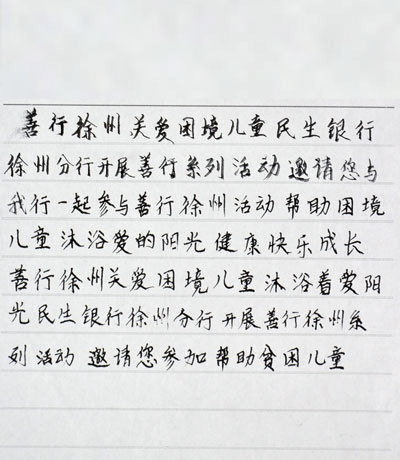 善行徐州关爱困境儿童民生银行
徐州分行开展善行系列活动邀请您与
我行一起参与善行徐州活动帮助困境
儿童沐浴爱的阳光健康快乐成长
善行徐州关爱困境儿童沐浴着爱阳
光民生银行徐州分行开展善行徐州系
列活动邀请您参加帮助贫困儿童